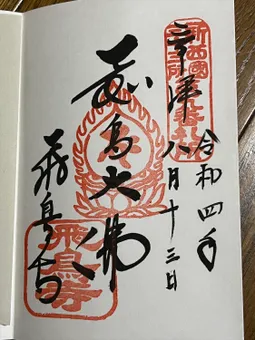 新西國
奉拝
令和四年
八月十三日
飛鳥大佛
飛鳥寺
飛鳥寺